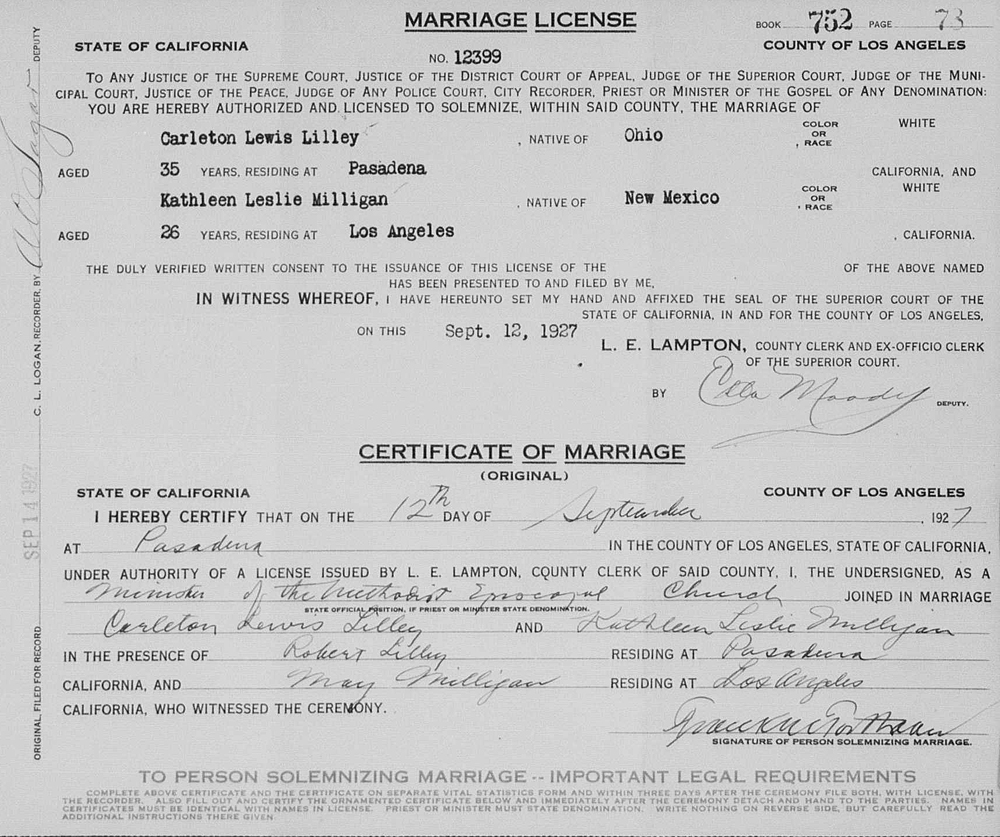 MARRIAGE LICENSE
BOOK 752 PAGE 73
STATE OF CALIFORNIA
COUNTY OF LOS ANGELES
NO. 12399
TO ANY JUSTICE OF THE SUPREME COURT, JUSTICE OF THE DISTRICT COURT OF APPEAL, JUDGE OF THE SUPERIOR COURT, JUDGE OF THE MUNI-
CIPAL COURT, JUSTICE OF THE PEACE, JUDGE OF ANY POLICE COURT, CITY RECORDER, PRIEST OR MINISTER OF THE GOSPEL OF ANY DENOMINATION:
YOU ARE HEREBY AUTHORIZED AND LICENSED TO SOLEMNIZE, WITHIN SAID COUNTY, THE MARRIAGE OF
Carleton Lewis Lilley , NATIVE OF Ohio , COLOR OR RACE WHITE
AGED 35 YEARS, RESIDING AT Pasadena CALIFORNIA, AND
Kathleen Leslie Milligan , NATIVE OF New Mexico , COLOR OR RACE WHITE
AGED 26 YEARS, RESIDING AT Los Angeles , CALIFORNIA.
THE DULY VERIFIED WRITTEN CONSENT TO THE ISSUANCE OF THIS LICENSE OF THE OF THE ABOVE NAMED
HAS BEEN PRESENTED TO AND FILED BY ME,
IN WITNESS WHEREOF, I HAVE HEREUNTO SET MY HAND AND AFFIXED THE SEAL OF THE SUPERIOR COURT OF THE
STATE OF CALIFORNIA, IN AND FOR THE COUNTY OF LOS ANGELES,
ON THIS Sept. 12, 1927
L. E. LAMPTON, COUNTY CLERK AND EX-OFFICIO CLERK
OF THE SUPERIOR COURT.
BY Etta Moody DEPUTY.
CERTIFICATE OF MARRIAGE
(ORIGINAL)
STATE OF CALIFORNIA
COUNTY OF LOS ANGELES
I HEREBY CERTIFY THAT ON THE 12th DAY OF September , 1927
AT Pasadena IN THE COUNTY OF LOS ANGELES, STATE OF CALIFORNIA,
UNDER AUTHORITY OF A LICENSE ISSUED BY L. E. LAMPTON, COUNTY CLERK OF SAID COUNTY, I, THE UNDERSIGNED, AS A
Minister of the Methodist Episcopal Church JOINED IN MARRIAGE
STATE OFFICIAL POSITION, IF PRIEST OR MINISTER STATE DENOMINATION.
Carleton Lewis Lilley AND Kathleen Leslie Milligan
IN THE PRESENCE OF Robert Lilley RESIDING AT Pasadena
CALIFORNIA, AND May Milligan RESIDING AT Los Angeles
CALIFORNIA, WHO WITNESSED THE CEREMONY.
SIGNATURE OF PERSON SOLEMNIZING MARRIAGE.
TO PERSON SOLEMNIZING MARRIAGE -- IMPORTANT LEGAL REQUIREMENTS
COMPLETE ABOVE CERTIFICATE AND THE CERTIFICATE ON SEPARATE VITAL STATISTICS FORM AND WITHIN THREE DAYS AFTER THE CEREMONY FILE BOTH, WITH LICENSE, WITH
THE RECORDER. ALSO FILL OUT AND CERTIFY THE ORNAMENTED CERTIFICATE BELOW AND IMMEDIATELY AFTER THE CEREMONY DETACH AND HAND TO THE PARTIES. NAMES IN
CERTIFICATES MUST BE IDENTICAL WITH NAMES IN LICENSE. PRIEST OR MINISTER MUST STATE DENOMINATION. WRITE NOTHING ON REVERSE SIDE, BUT CAREFULLY READ THE
ADDITIONAL INSTRUCTIONS THERE GIVEN
ORIGINAL FILED FOR RECORD SEP 14 1927 C. L. LOGAN, RECORDER, BY DEPUTY